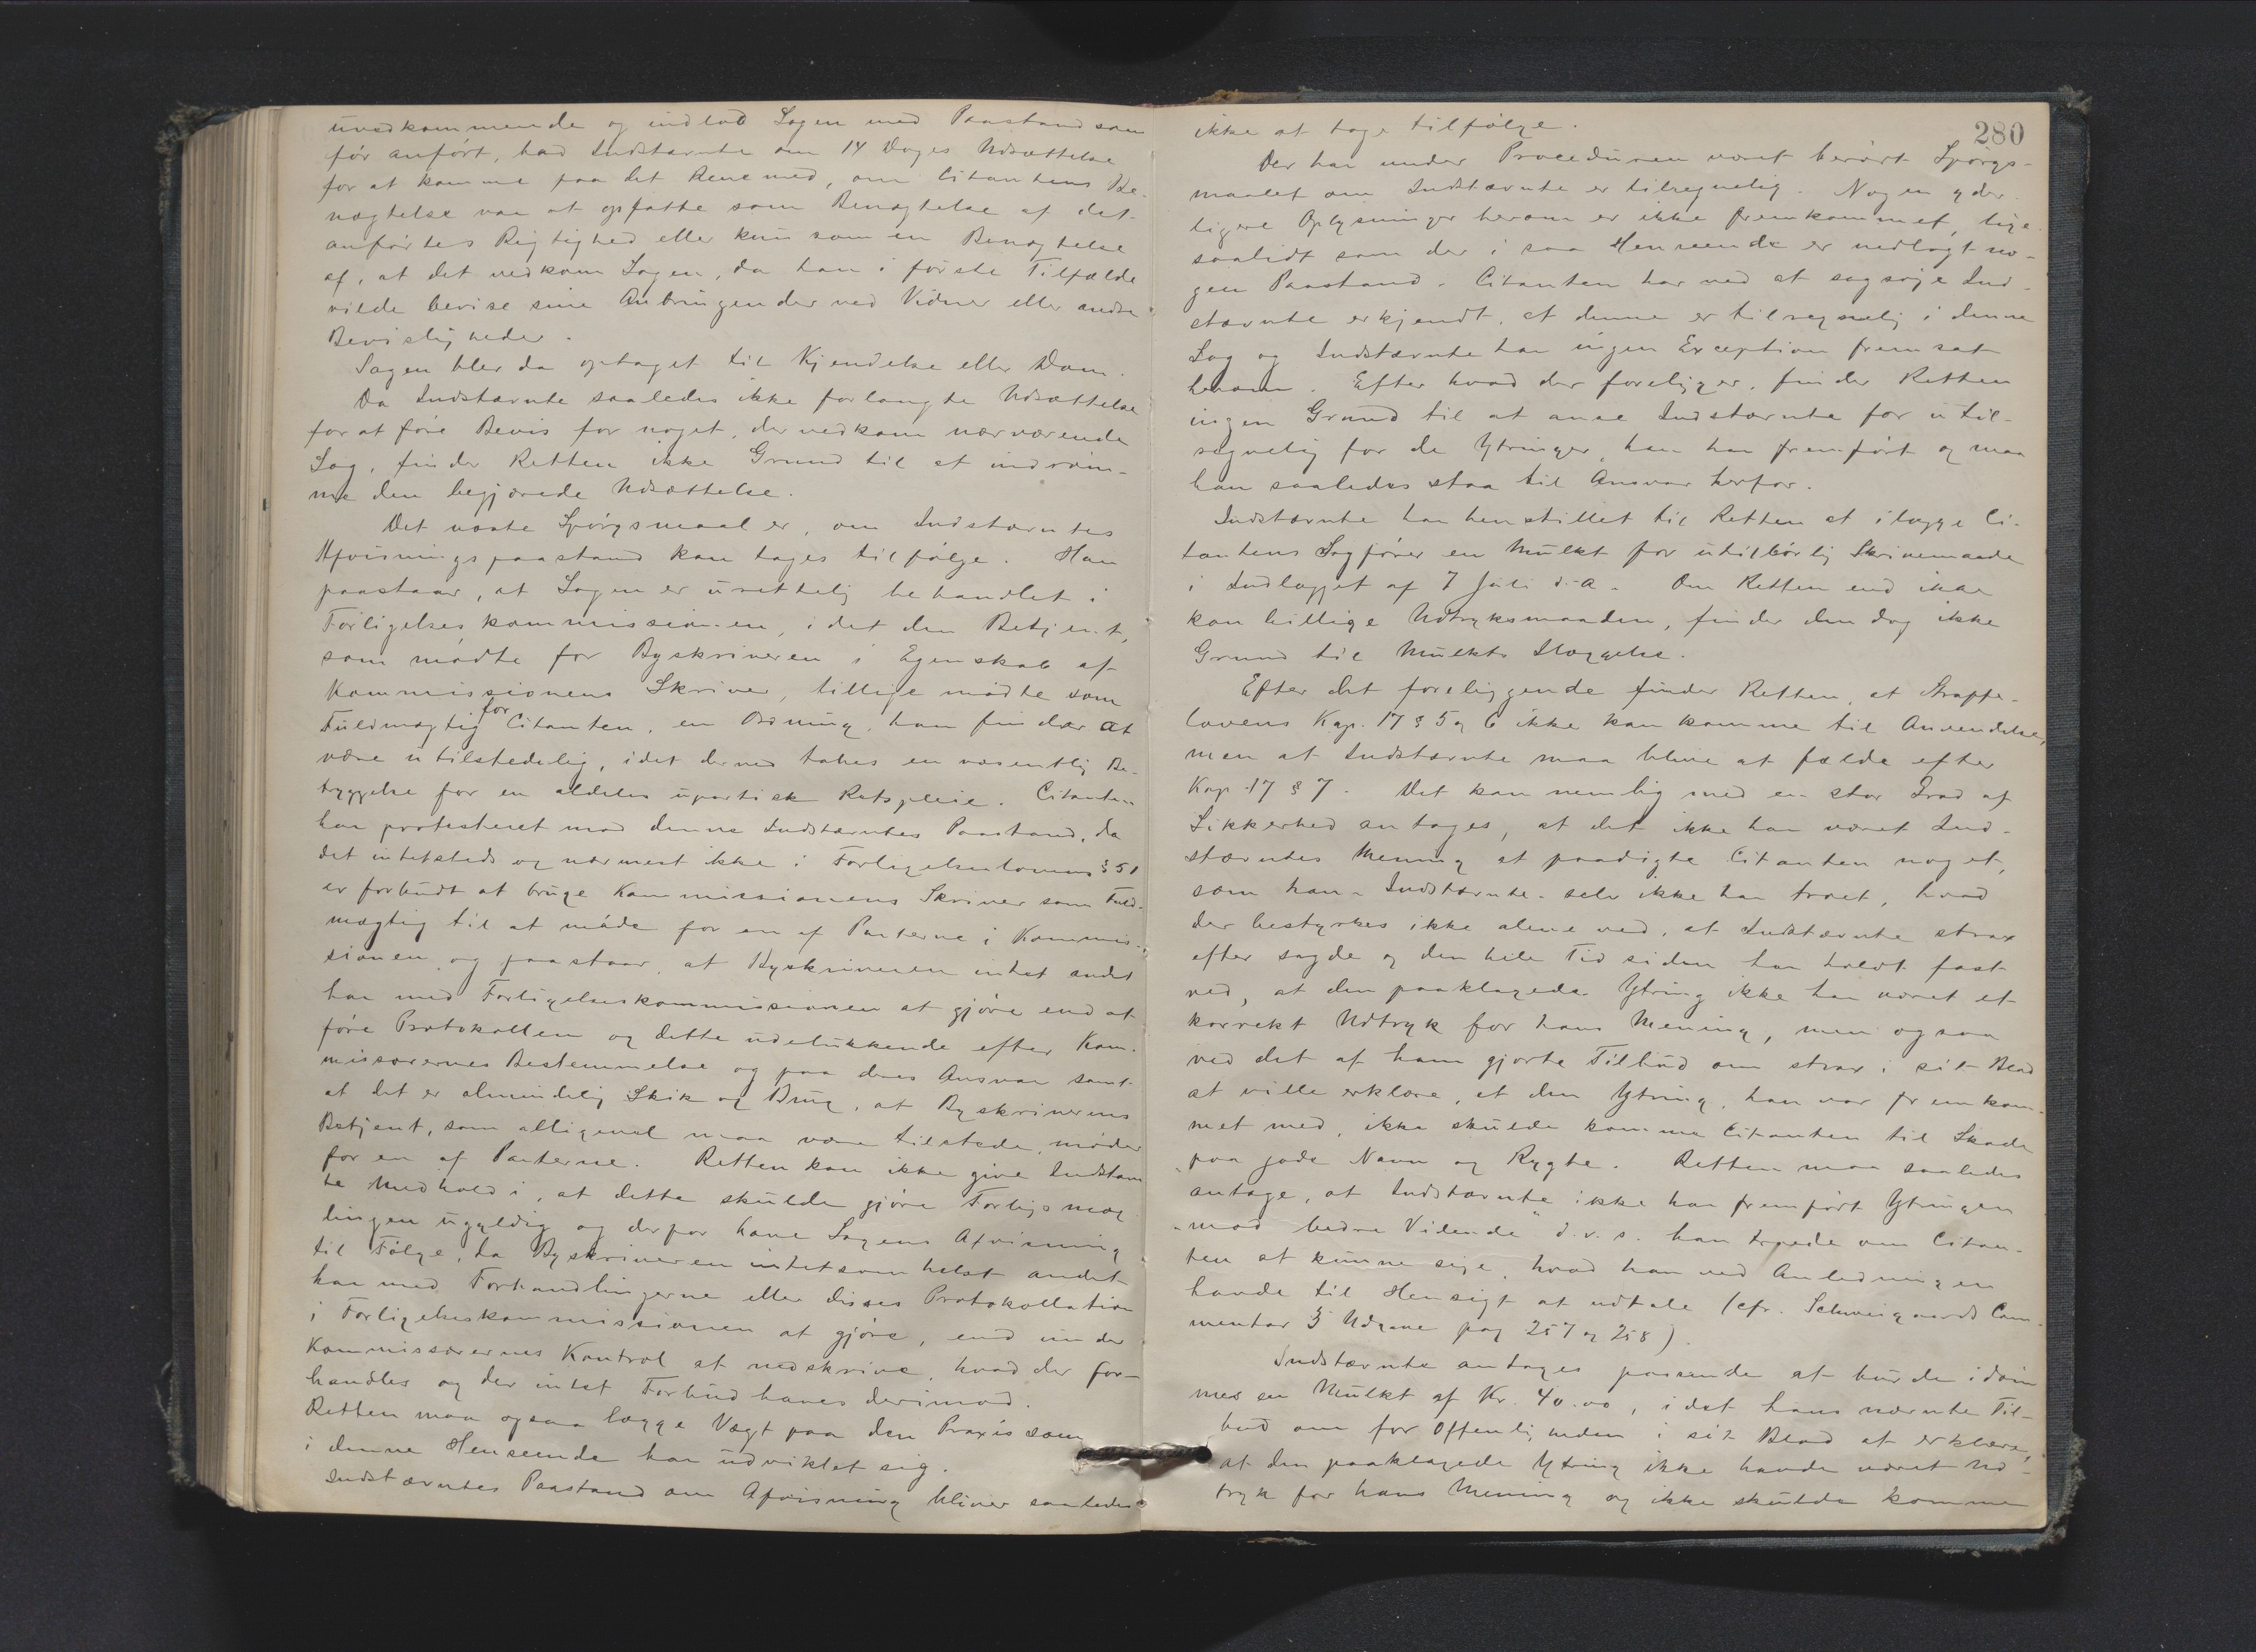 uvedkommende og indlod Sagen med Paastand som
før anført, bad Indstævnte om 14 Dages Udsættelse
for at komme paa det Rene med, om Citantens Be-
nægtelse var at opfatte som Benægtelse af det
anførtes Rigtighed eller kun som en Benægtelse
af, at det vedkom Sagen, da han i første Tilfælde
vilde bevise sine Anbringender ved Vidner eller andre
Bevisligheder.
Sagen blev da optaget til Kjendelse eller Dom.
Da Indstævnte saaledes ikke forlangte Udsættelse
for at føre Bevis for noget, der vedkom nærværende
Sag, finder Retten ikke Grund til at indrøm-
me den begjærede Udsættelse.
Det næste Spørgsmaal er, om Indstævntes
Afvisningspaastand kan tages tilfølge. Han
paastaar, at Sagen er urettelig behandlet i
Forligelseskommissionen, idet den Betjent,
som mødte for Byskriveren i Egenskab af
Kommissionens Skriver, tillige mødte som
Fuldmægtig for Citanten, en Ordning, han finder at
være utilstedelig, idet derved tabes en væsentlig Be-
tryggelse for en aldeles upartisk Retspleie. Citanten
har protesteret mod denne Indstævntes Paastand, da
det intetsteds og nærmest ikke i Forligelseslovens § 51
er forbudt at bruge Kommissionens Skriver som Fuld-
mægtig til at møde for en af Parterne i Kommis-
sionen, og paastaar, at Byskriveren intet andet
har med Forligelseskommissionen at gjøre end at
føre Protokollen og dette udelukkende efter Kom-
missærernes Bestemmelse og paa deres Ansvar samt
at det er almindelig Skik og Brug, at Byskriverens
Betjent, som alligevel maa være tilstede, møder
for en af Parterne. Retten kan ikke give Indstævn
te Medhold i, at dette skulde gjøre Forligsmæg
lingen ugyldig og derfor have Sagens Afvisning
til Følge, da Byskriveren intetsomhelst andet
har med Forhandlingerne eller disses Protokollation
i Forligelseskommissionen at gjøre, end under
Kommissærernes Kontrol at nedskrive, hvad der for-
handles og der intet Forbud haves derimod.
Retten maa ogsaa lægge Vægt paa den Praxis som
i denne Henseende har udviklet sig.
Indstævntes Paastand om Afvisning bliver saaledes
280
ikke at tage tilfølge.
Der har under Proceduren været berørt Spørgs-
maalet om Indstævnte er tilregnelig. Nogen yder-
ligere Oplysninger herom er ikke fremkommet, lige-
saalidt som der i saa Henseende er nedlagt no-
gen Paastand. Citanten har ved at sagsøge Ind-
stævnte erkjendt, at denne er tilregnelig i denne
Sag og Indstævnte har ingen Exception fremsat
herom. Efter hvad der foreligger, finder Retten
ingen Grund til at anse Indstævnte for util-
regnelig for de Ytringer, han har fremført og maa
han saaledes staa til Ansvar herfor.
Indstævnte har henstillet til Retten at ilægge Ci-
tantens Sagfører en Mulkt for utilbørlig Skrivemaade
i Indlægget af 7 Juli d.A. Om Retten end ikke
kan billige Udtryksmaaden, finder den dog ikke
Grund til Mulkts Ilæggelse.
Efter det foreliggende finder Retten, at Straffe-
lovens Kap. 17 § 5 og 6 ikke kan komme til Anvendelse,
men at Indstævnte maa blive at fælde efter
Kap 17 § 7. Det kan nemlig med en stor Grad af
Sikkerhed antages, at det ikke har været Ind-
stævntes Mening at paadigte Citanten noget,
som han - Indstævnte - selv ikke har troet, hvad
der bestyrkes ikke alene ved, at Indstævnte strax
efter sagde og den hele Tid siden har holdt fast
ved, at den paaklagede Ytring ikke har været et
korrekt Udtryk for hans Mening, men ogsaa
ved det af ham gjorte Tilbud om strax i sit Blad
at ville erklære, at den Ytring, han var fremkom-
met med, ikke skulde komme Citanten til Skade
paa gode Navn og Rygte. Retten maa saaledes
antage, at Indstævnte ikke har fremført Ytringen
"mod bedre Vidende" d.v.s. han troede om Citan-
ten at kunne sige, hvad han ved Anledningen
havde til Hensigt at udtale (cfr. Schweigaards Com-
mentar 3 Udgave pag 257 og 258).
Indstævnte antages passende at burde idøm
mes en Mulkt af Kr. 40.00, idet hans nævnte Til-
bud om for Offentligheden i sit Blad at erklære,
at den paaklagede Ytring ikke havde været Ud-
tryk for hans Mening og ikke skulde komme